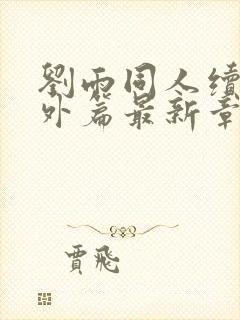 劉雨同人續
外篇最新章
賈飛